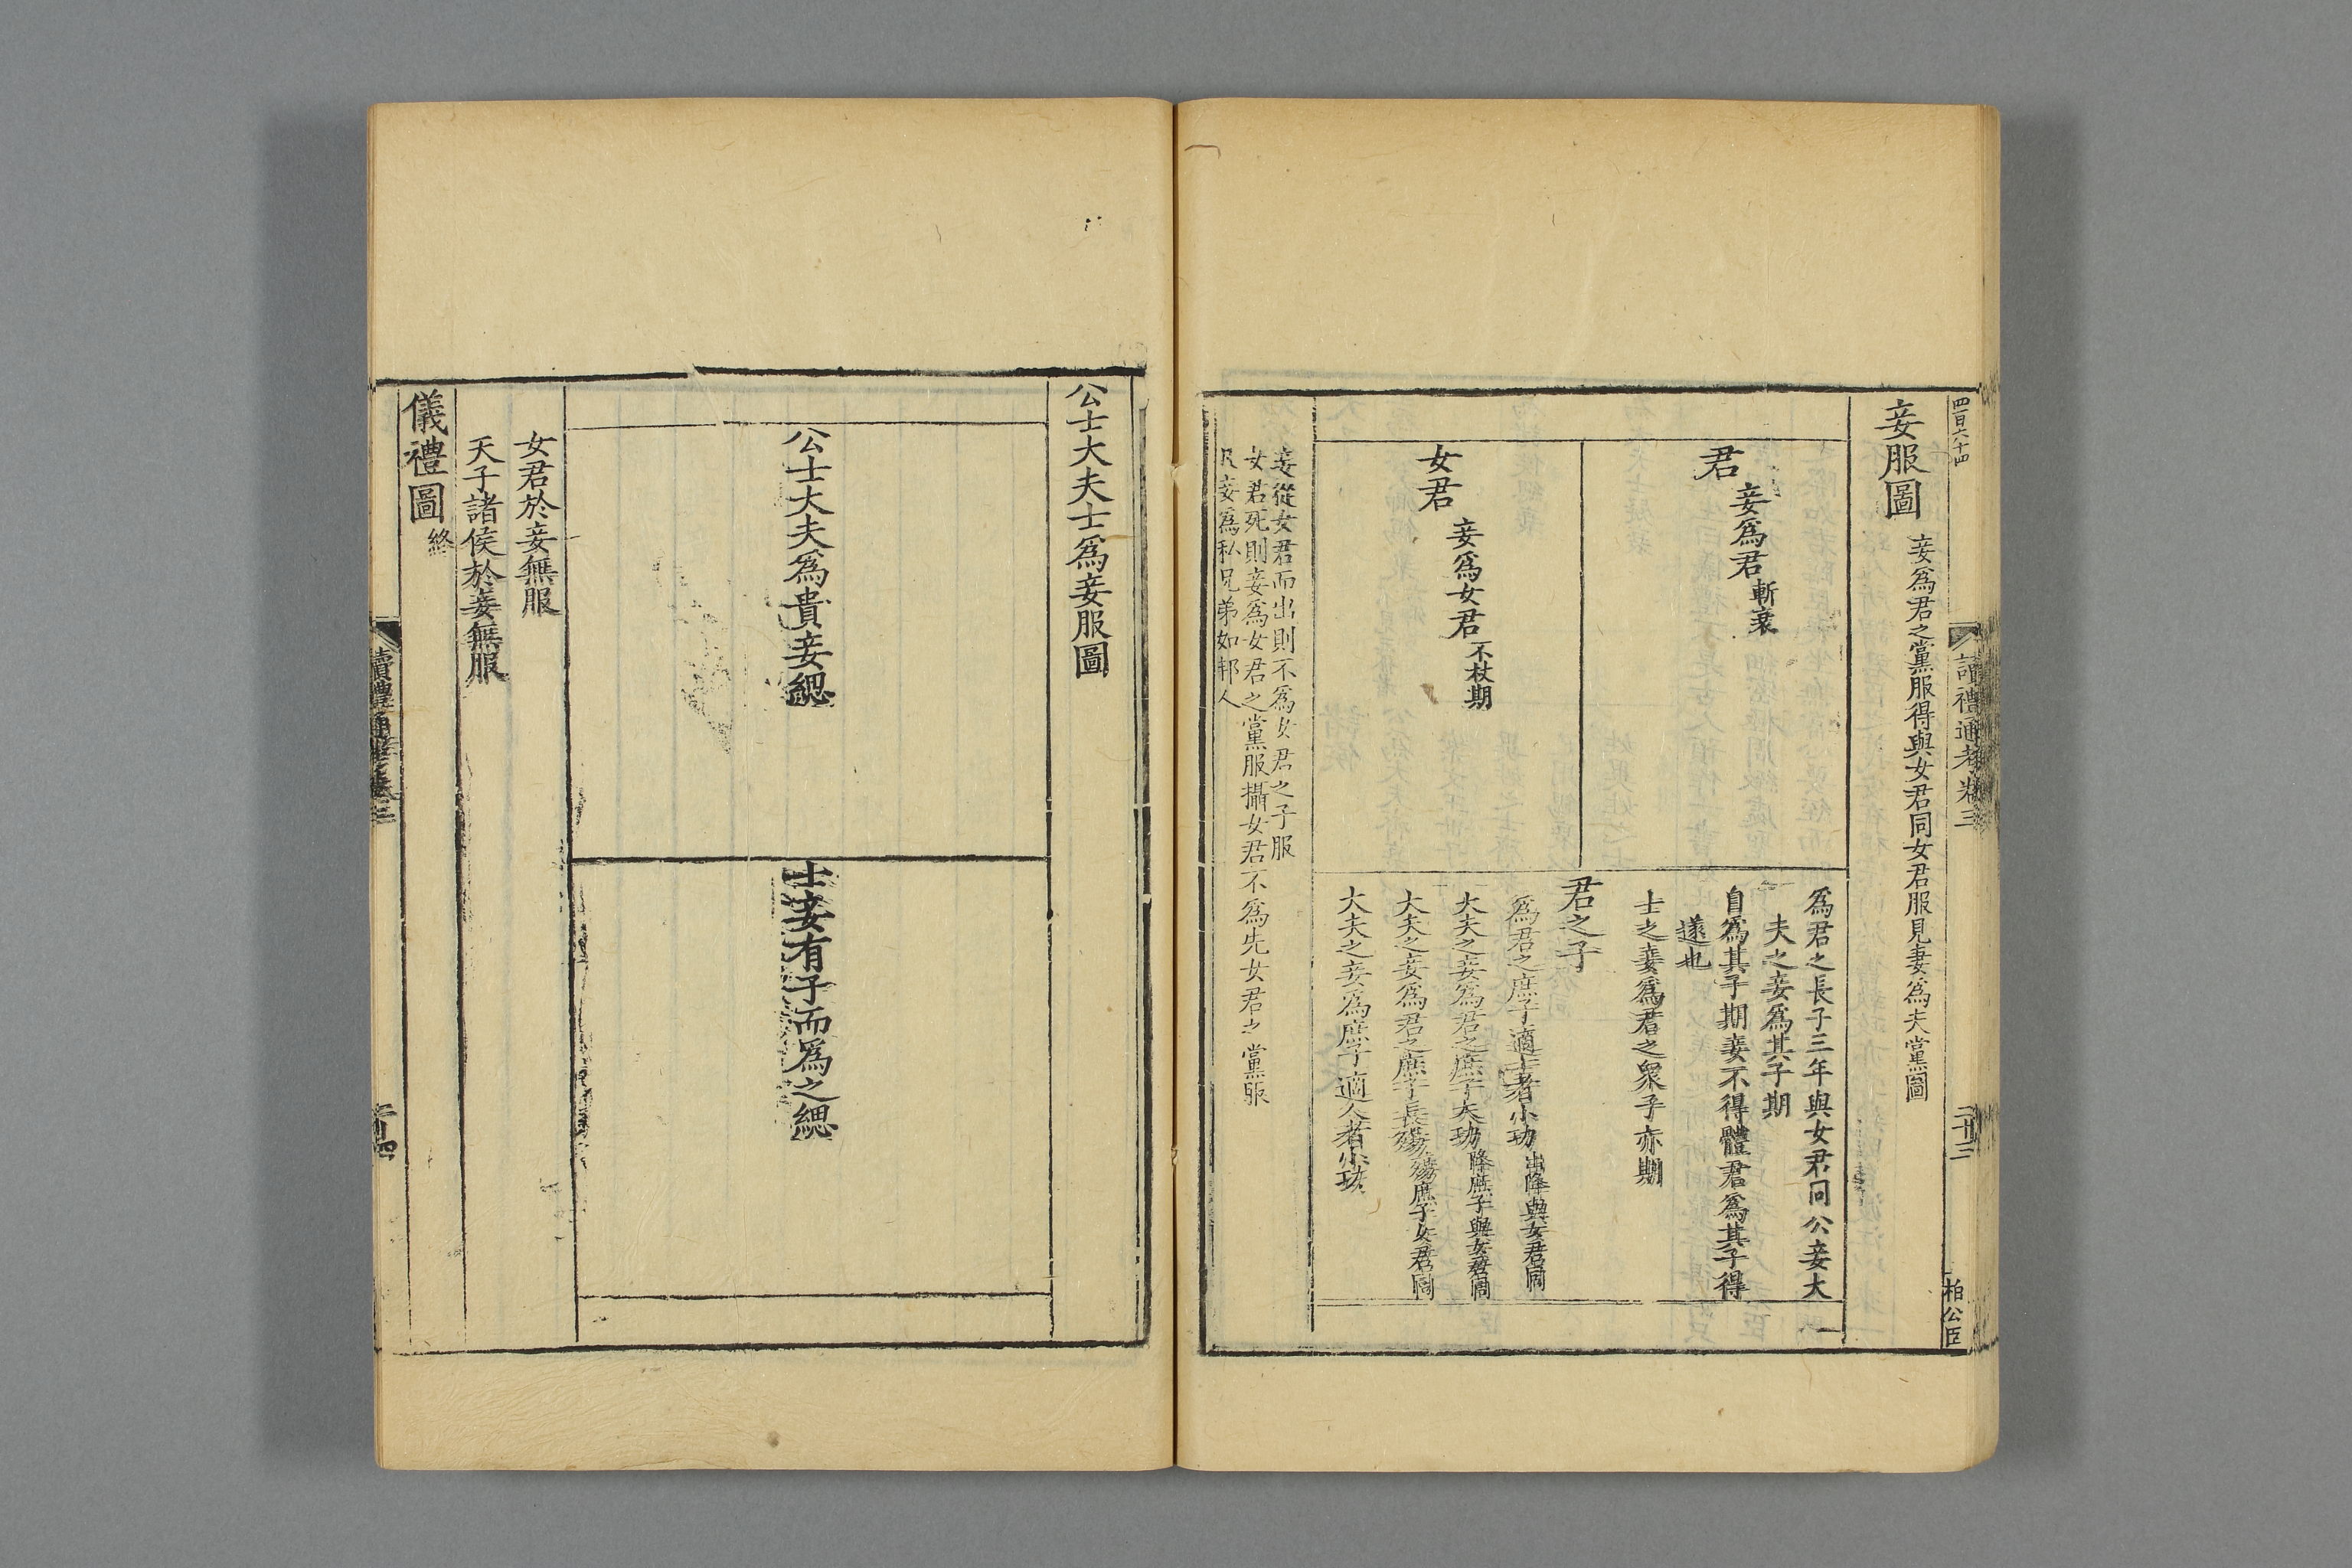 四百六十四
讀禮通考卷三
二十三
柏公臣
妾服圖 妾爲君之黨服得與女君同女君服見妻爲夫黨圖
君 妾爲君斬衰
女君 妾爲女君不杖期
爲君之長子三年與女君同公妾大
夫之妾爲其子期
自爲其子期妾不得體君爲其子得
遂也
士之妾爲君之衆子亦期
君之子
爲君之庶子適士者小功出降與女君同
大夫之妾爲君之庶子大功降庶子與女君同
大夫之妾爲君之庶子長殤殤庶子女君同
大夫之妾爲庶子適人者小功
妾從女君而出則不爲女君之子服
女君死則妾爲女君之黨服攝女君不爲先女君之黨服
凡妾爲私兄弟如邦人
公士大夫士爲妾服圖
公士大夫爲貴妾緦
士妾有子而爲之緦
女君於妾無服
天子諸侯於妾無服
儀禮圖終
讀禮通考卷三